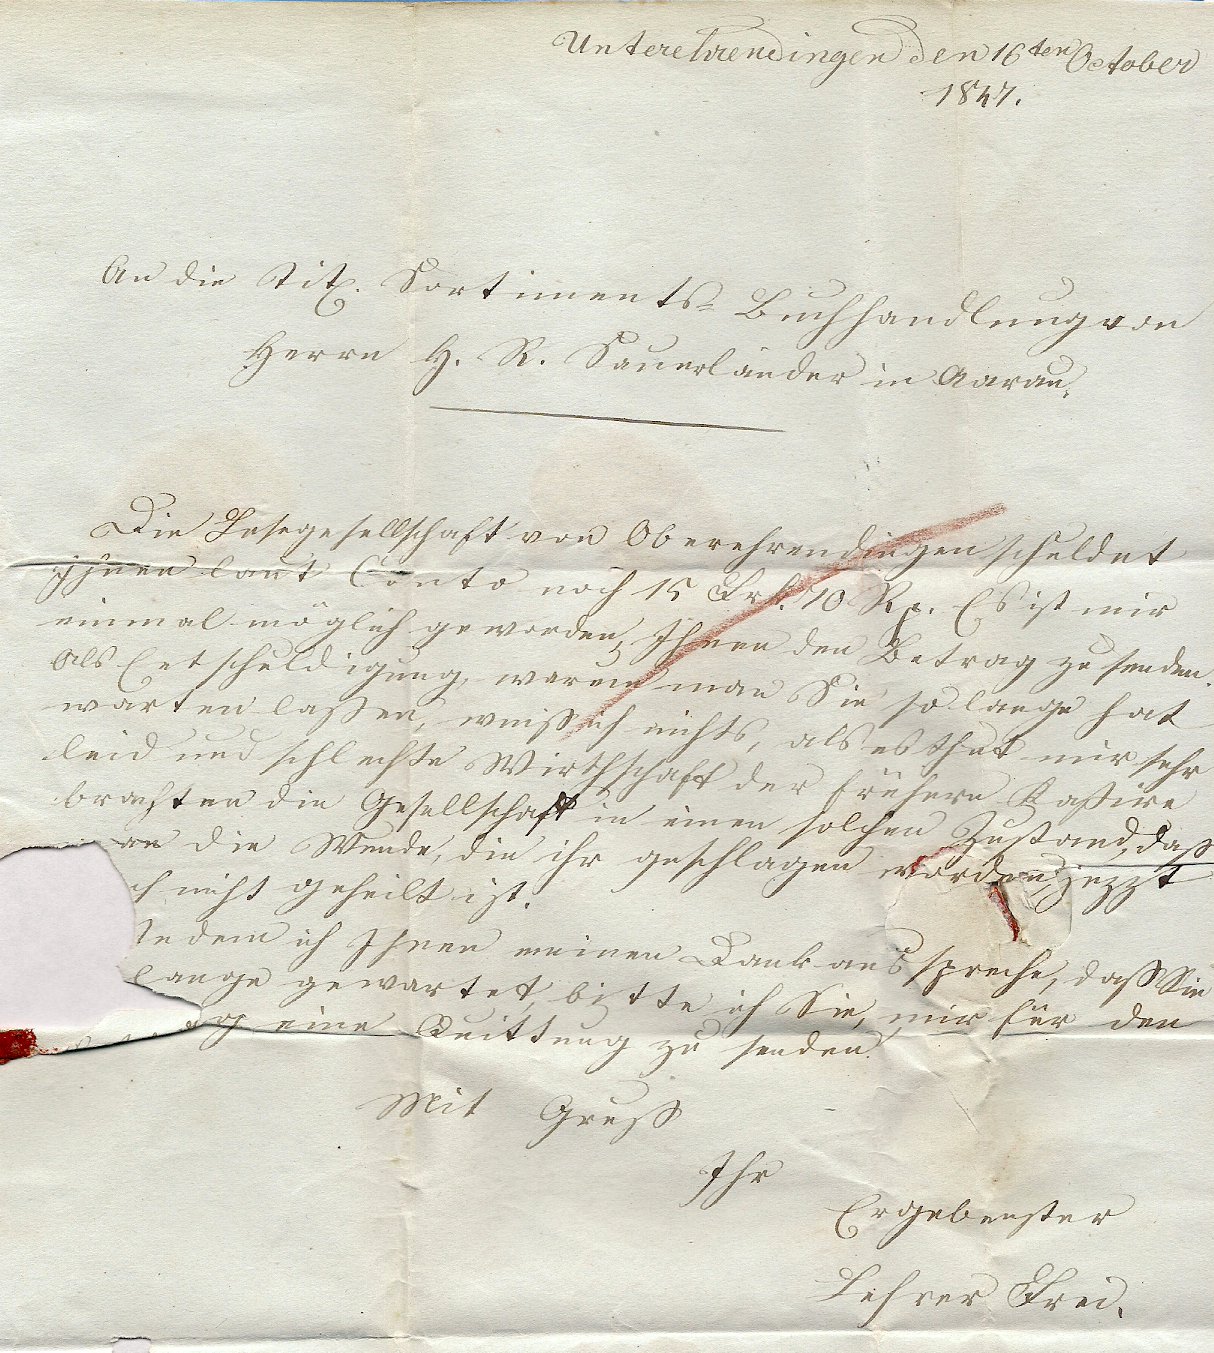 Unterehrendingen den 16ten October
1847.
An die Tit. Sortiments-Buchhandlung von
Herrn H. R. Sauerländer in Aarau.
Die Lesegesellschaft von Oberehrendingen schuldet
Ihnen laut Conto noch 15 Frk. 70 Rp. Es ist mir
einmal möglich geworden, Ihnen den Betrag zu senden.
Als Entschuldigung, warum man Sie so lange hat
warten laßen, weiß ich nichts, als es thut mir sehr
leid und schlechte Wirthschaft der frühern Kaßire
brachten die Gesellschaft in einen solchen Zustand, daß
die Wunde, die ihr geschlagen worden, jezzt
ch nicht geheilt ist.
Indem ich Ihnen meinen Dank ausspreche, daß Sie
lange gewartet, bitte ich Sie, mir für den
g eine Quittung zu senden.
Mit Gruß
Ihr
Ergebenster
Lehrer Frei.